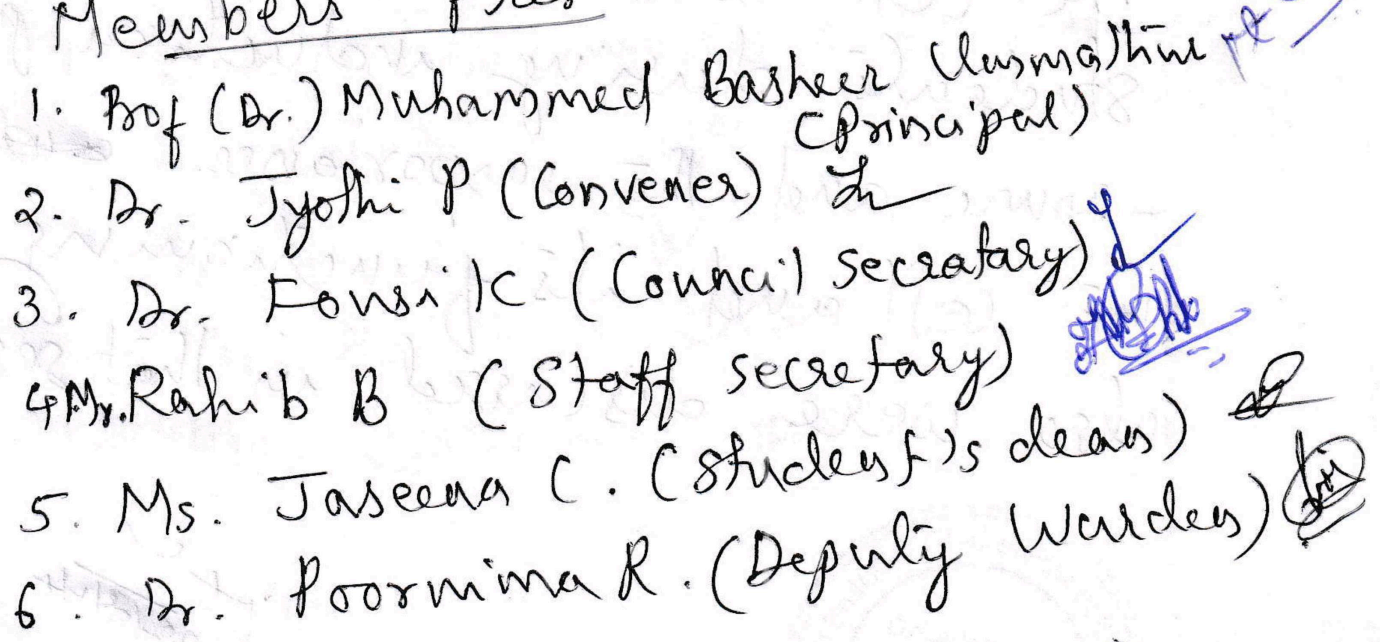 Members
1. Prof (Dr.) Muhammed Basheer Ummathur
(Principal)
2. Dr. Jyothi P (Convener)
3. Dr. Fousi K (Council secratary)
4 Mr. Rahib B (Staff secretary)
5. Ms. Jaseena C. (Student's dean)
6. Dr. Poornima R. (Deputy Warden)